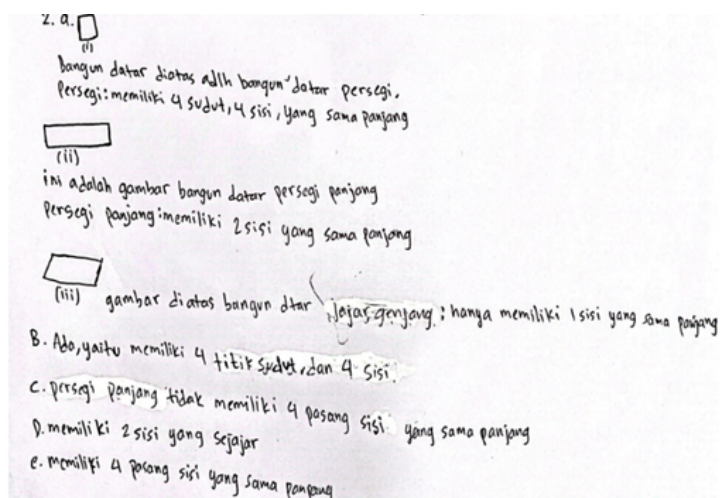 2. a.
(i)
Bangun datar diatas adlh bangun datar persegi.
Persegi: memiliki 4 sudut, 4 sisi, yang sama panjang
(ii)
ini adalah gambar bangun datar persegi panjang
Persegi panjang: memiliki 2 sisi yang sama panjang
(iii) gambar diatas bangun dtar Jajar genjang : hanya memiliki 1 sisi yang sama panjang
B. Ada, yaitu memiliki 4 titik sudut, dan 4 sisi.
C. persegi panjang tidak memiliki 4 pasang sisi yang sama panjang
D. memiliki 2 sisi yang sejajar
e. memiliki 4 pasang sisi yang sama panjang